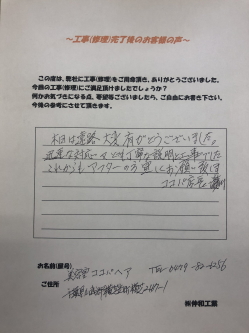 ～工事(修理)完了後のお客様の声～
この度は、弊社に工事(修理)をご用命頂き、ありがとうございました。
今回の工事(修理)にご満足頂けましたでしょうか？
何かお気づきになる点、希望等ございましたら、ご自由にお書き下さい。
今後の参考にさせて頂きます。
本日は遠路 大変有がとうございました。
迅速な対応 とても丁寧な説明と工事でした
これからも アフターの方 宜しくお願い致します
ココパ店長
お名前(屋号) 美容室 ココパヘア TEL 0479-82-4256
ご住所 千葉県山武郡横芝光町
㈱伸和工業